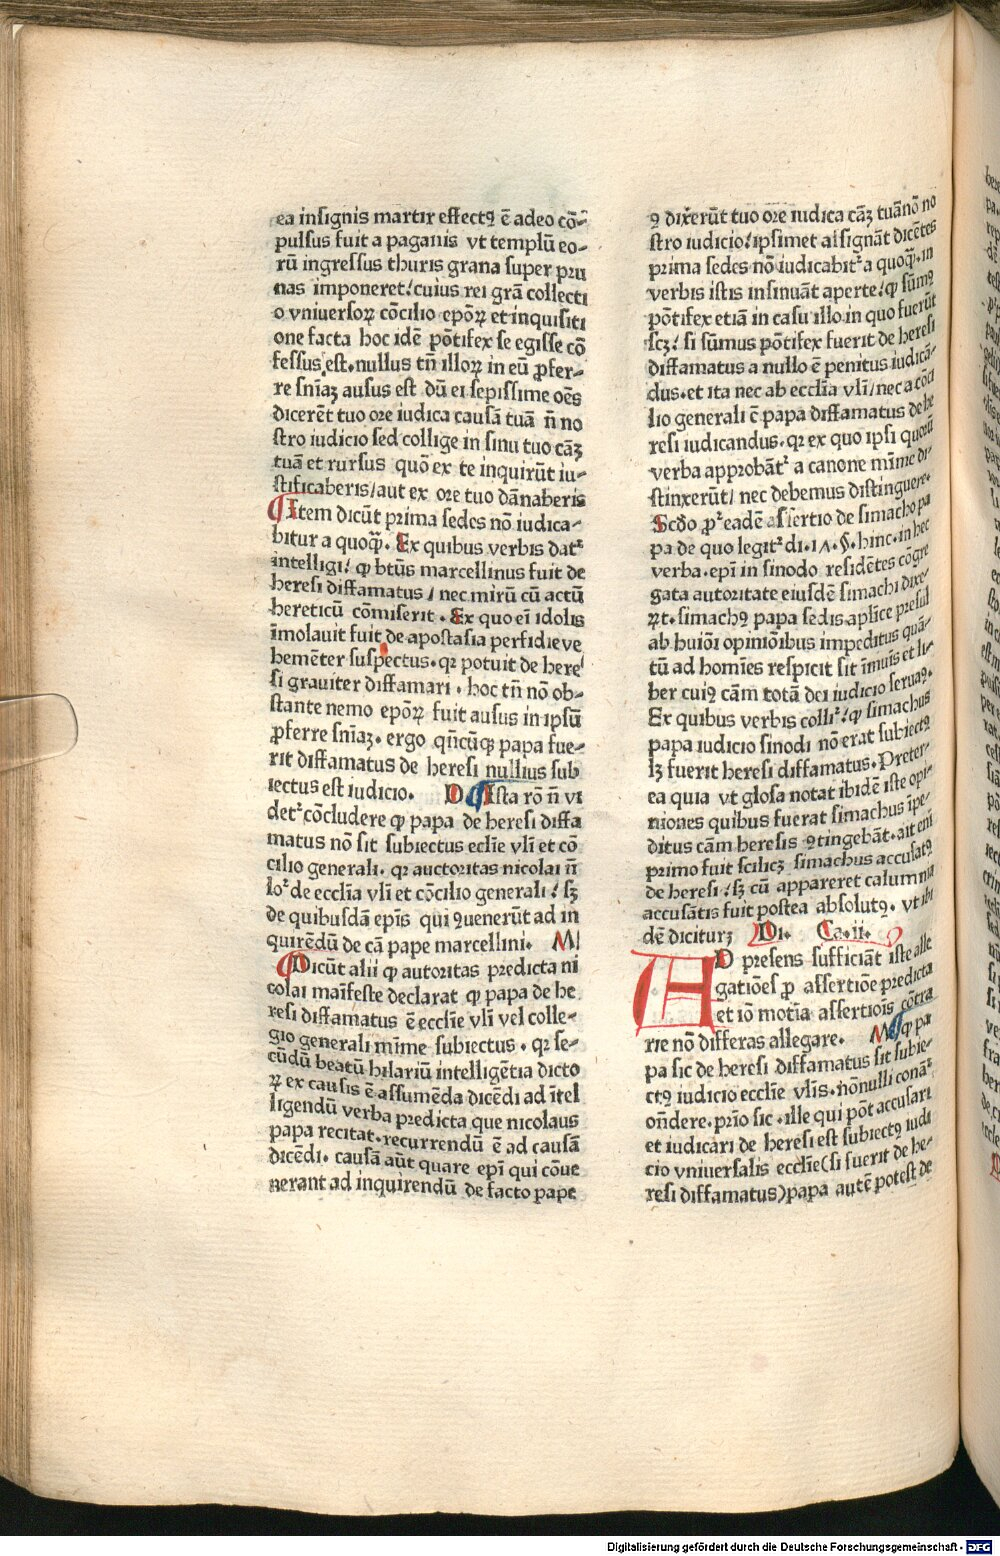 ea insignis martir effectꝰ ē adeo cō-
pulsus fuit a paganis vt templū eo-
rū ingressus thuris grana super pru
nas imponeret/cuius rei grā collecti
o vniuersoꝝ cōcilio epōꝝ et inquisiti
one facta hoc idē pōtifex se egisse cō
fessus est.nullus tñ illoꝝ in eū ꝓfer-
re sñiaꝫ ausus est dū ei sepissime oēs
dicerēt tuo ore iudica causā tuā ñ no
stro iudicio sed collige in sinu tuo cāꝫ
tuā et rursus quō ex te inquirūt iu-
stificaberis/aut ex ore tuo dānaberis
Item dicūt prima sedes nō iudica-
bitur a quoqͣ̄. Ex quibus verbis datᷣ
intelligi/ ꝙ btūs marcellinus fuit de
heresi diffamatus / nec mirū cū actū
hereticū cōmiserit . Ex quo eī idolis
īmolauit fuit de apostasia perfidie ve
hemēter suspectus.qꝛ potuit de here
si grauiter diffamari . hoc tñ nō ob-
stante nemo epōꝝ fuit ausus in ipsū
ꝓferre sñiaꝫ. ergo qñcūqꝫ papa fue-
rit diffamatus de heresi nullius sub
iectus est iudicio. D Ista rō ñ vi
detᷣ cōcludere ꝙ papa de heresi diffa
matus nō sit subiectus eclie vli et cō
cilio generali. qꝛ auctoritas nicolai ñ
loᷣ de ecclia vli et cōcilio generali / sꝫ
de quibusdā epis qui ꝯuenerūt ad in
quirēdū de cā pape marcellini. M
Dicūt alii ꝙ autoritas predicta ni
colai maīfeste declarat ꝙ papa de he
resi diffamatus ē ecclie vli vel colle-
gio generali mīme subiectus . qꝛ se-
cūdū beatū hilariū intelligētia dicto
ꝝ ex causis ē assumēda dicēdi ad ītel
ligendū verba predicta que nicolaus
papa recitat.recurrendū ē ad causā
dicēdi. causā aūt quare epi qui cōue
nerant ad inquirendū de facto pape
ꝯ dixerūt tuo ore iudica cāꝫ tuā nō no
stro iudicio/ipsimet assignāt dicētes
prima sedes nō iudicabitᷣ a quoqͣ̄.in
verbis istis insinuāt aperte/ꝙ sūmꝰ
pōtifex etiā in casu illo in quo fuerūt
scꝫ/ si sūmus pōtifex fuerit de heresi
diffamatus a nullo ē penitus iudicā-
dus.et ita nec ab ecclia vli/nec a cōci
lio generali ē papa diffamatus de he
resi iudicandus.qꝛ ex quo ipsi quorū
verba approbātᷣ a canone mīme di-
stinxerūt/ nec debemus distinguere.
Scdo ꝓᷣ eadē assertio de simacho pa
pa de quo legitᷣ di.17.§.hinc.in hec
verba.epi in sinodo residētes cōgre
gata autoritate eiusdē simachi dixe-
ꝝt.simachꝰ papa sedis aplice presul
ab huiōi opiniōibus impeditus quā-
tū ad homies respicit sit īmuīs et li-
ber cuiꝰ cām totā dei iudicio seruaꝫ.
Ex quibus verbis colliᷣ/ꝙ simachus
papa iudicio sinodi nō erat subiectꝰ
lꝫ fuerit heresi diffamatus.Preter-
ea quia vt glosa notat ibidē iste opi-
niones quibus fuerat simachus īpe-
ditus cām heresis ꝯtingebāt.ait enī
primo fuit scilicꝫ simachus accusatꝰ
de heresi/sꝫ cū appareret calumnia
accusātis fuit postea absolutꝰ. vt ibi
dē diciturꝫ Di. Ca.ii.
AD presens sufficiāt iste alle
gatiōes ꝓ assertiōe predicta
et iō motia assertiois cōtra
rie nō differas allegare. M ꝙ pa
pa sic de heresi diffamatus sit subie-
ctꝰ iudicio ecclie vlis.nōnulli conātᷣ
oñdere.prio sic.ille qui pōt accusari
et iudicari de heresi est subiectꝰ iudi
cio vniuersalis ecclie(si fuerit de he-
resi diffamatus)papa autē potest de
Digitalisierung gefördert durch die Deutsche Forschungsgemeinschaft - DFG